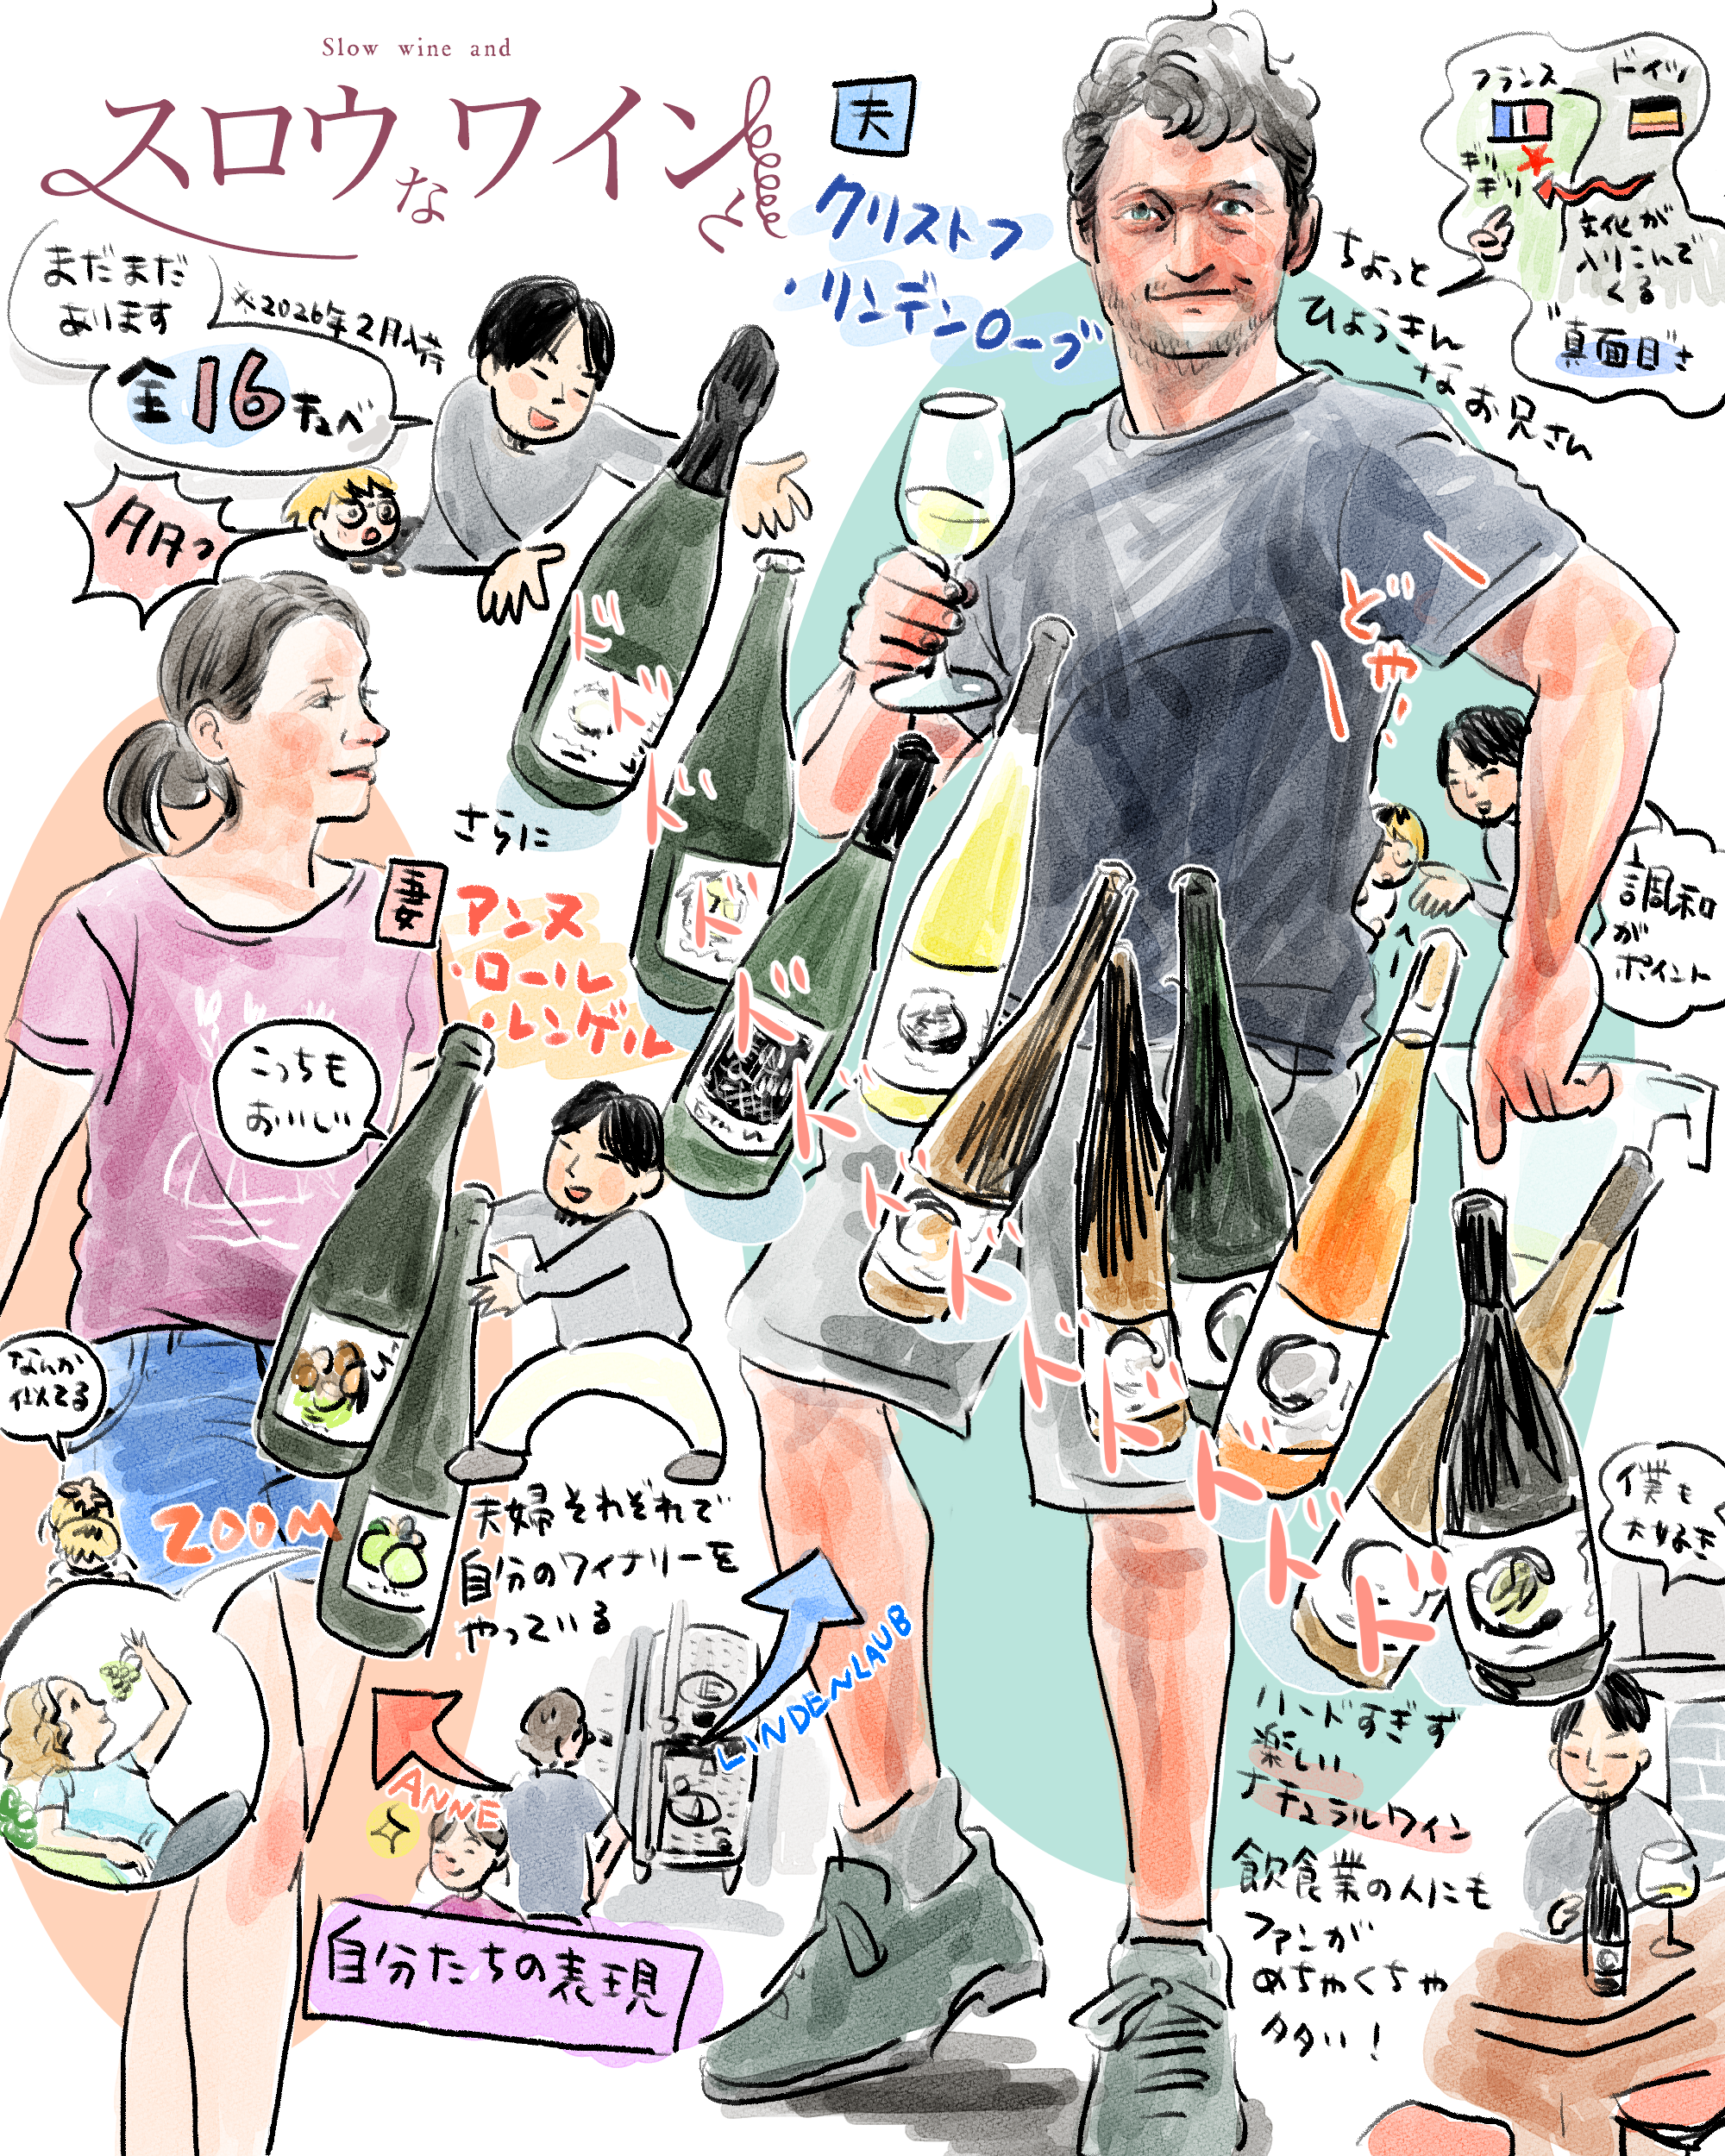 Slow wine and
スロウなワインと
夫
クリストフ
・リンデンローブ
フランス
ドイツ
ギリ
ギリ
文化が
入りこんで
くる
"真面目"さ
ちょっと
ひょうきん
なお兄さん
まだまだ
あります
※2026年2月時
全16キュベ
さらに
妻
アンヌ
・ロール
・レンゲル
どや!
ド
ド
ド
ド
ド
ド
ド
ド
ド
ド
ド
ド
ド
ド
へー
調和
が
ポイント
こっちも
おいしい
なんか
似てる
ZOOM
夫婦それぞれで
自分のワイナリーを
やっている
LINDENLAUB
ANNE
自分たちの表現
僕も
大好き
ハードすぎず
楽しい
ナチュラルワイン
飲食業の人にも
ファンが
めちゃくちゃ
多い!